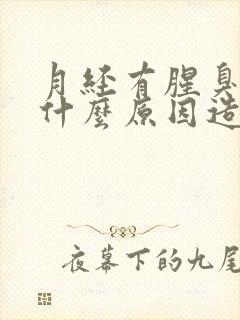 月経有腥臭
什麼原因造
夜幕下的九尾